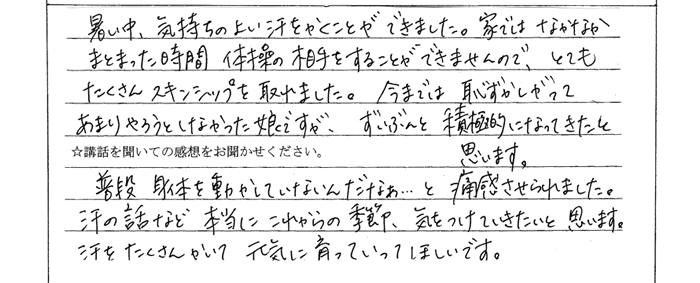 暑い中、気持ちのよい汗をかくことができました。家では なかなか
まとまった時間 体操の相手をすることができませんので、とても
たくさん スキンシップを取れました。 今までは 恥ずかしがって
あまりやろうとしなかった娘ですが、 ずいぶんと 積極的になってきたと
思います。
☆講話を聞いての感想をお聞かせください。
普段 身体を動かしていないんだなぁ…と 痛感させられました。
汗の話など 本当に これからの季節、気をつけていきたいと 思います。
汗をたくさんかいて 元気に育っていってほしいです。